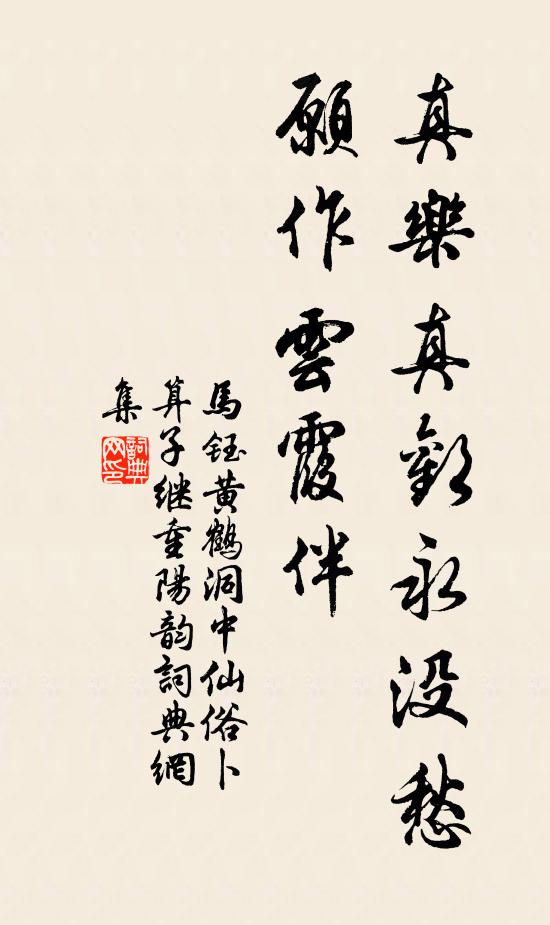 真樂真歡永没愁
願作雲霞伴
馬鈺黄鶴洞中仙俗卜
算子继重陽韵詞典網
集
詞典網印